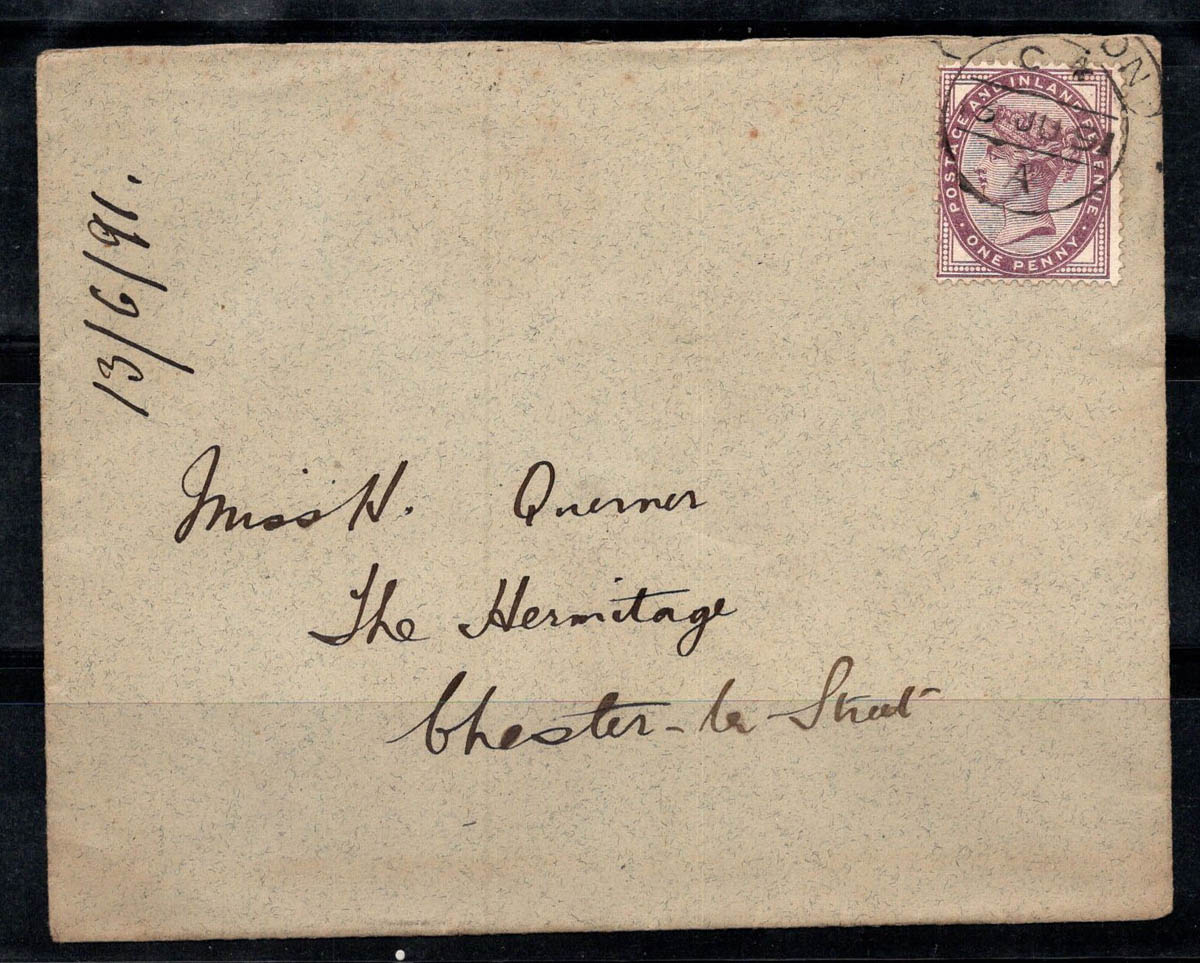 C 4
ON
JU 91
A
POSTAGE AND INLAND REVENUE
ONE PENNY
13/6/91.
Miss H. Querner
The Hermitage
Chester-le-Street